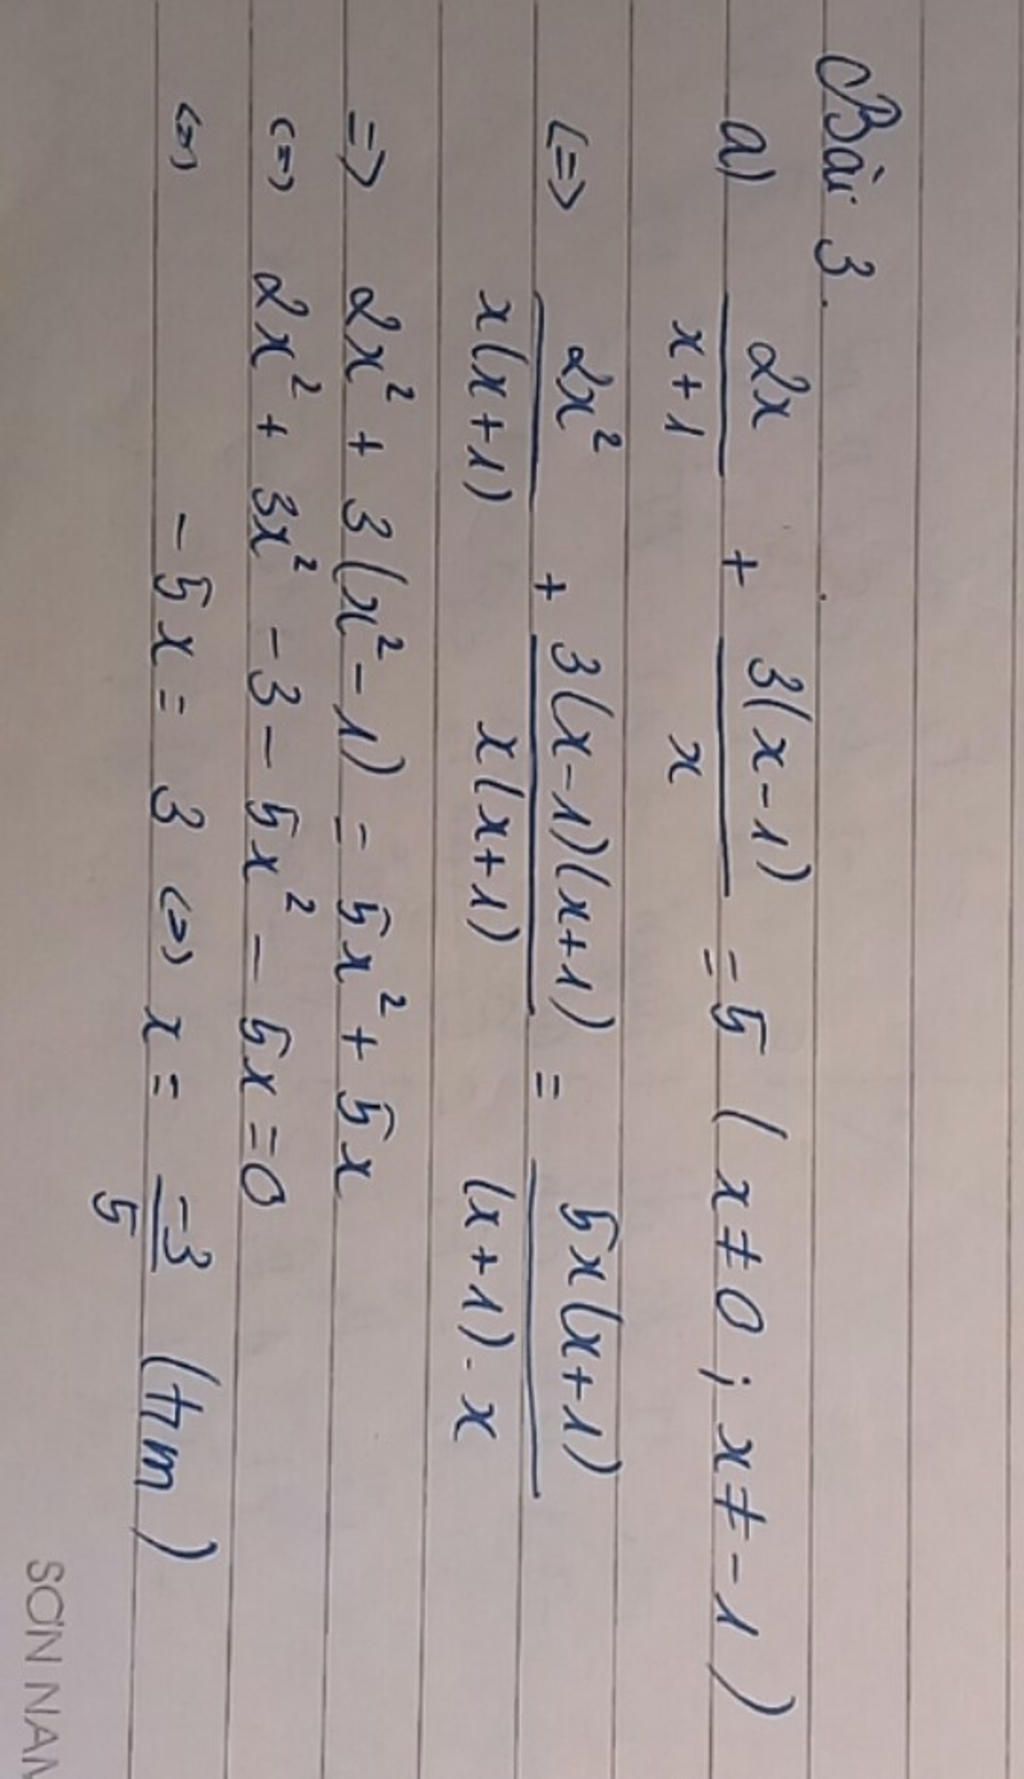 Bài 3.
a) 2x/(x+1) + 3(x-1)/x = 5 ( x ≠ 0 ; x ≠ -1 )
<=> 2x²/x(x+1) + 3(x-1)(x+1)/x(x+1) = 5x(x+1)/(x+1).x
=> 2x² + 3(x²-1) = 5x² + 5x
<=> 2x² + 3x² - 3 - 5x² - 5x = 0
<=> -5x = 3 <=> x = -3/5 (tm)
SƠN NAM